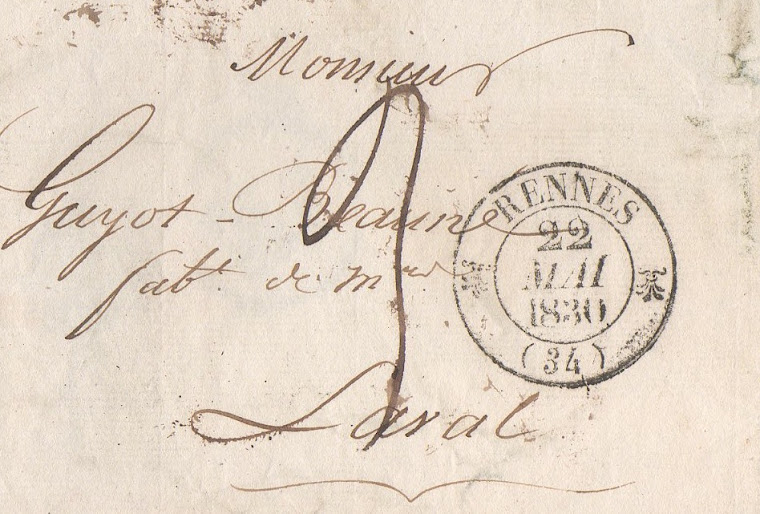 Monsieur
Guyot-Beaune
fabt. de mds
Laval
3
RENNES
22
MAI
1830
(34)